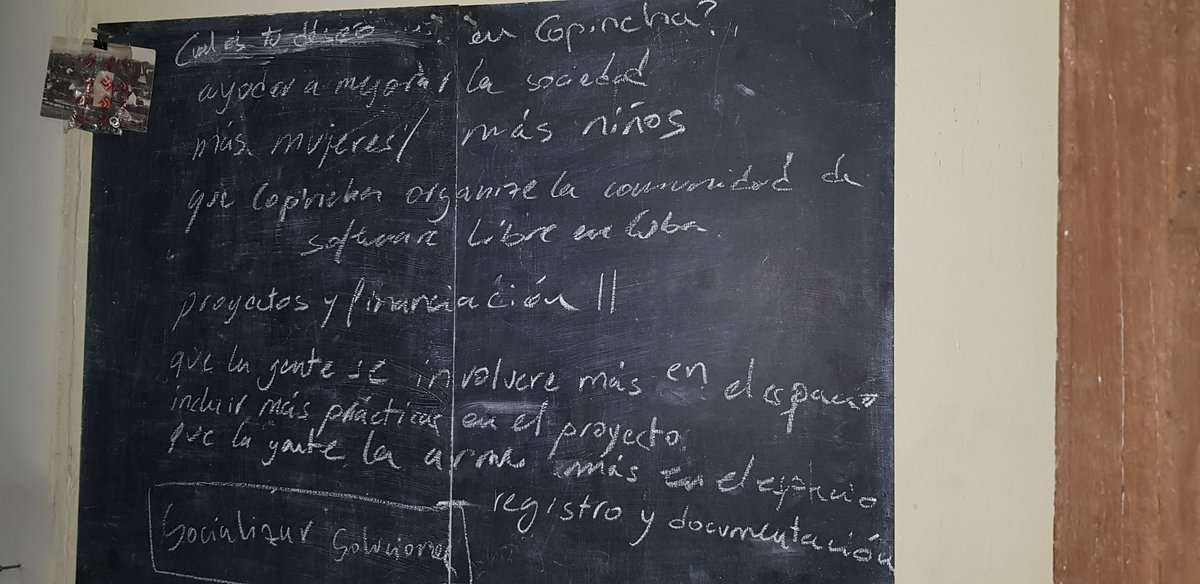 Cual es tu deseo ... en Copincha?
ayudar a mejorar la sociedad
más mujeres/ más niños
que Copincha organize la comunidad de
software libre en Cuba.
proyectos y financiación ||
que la gente se involucre más en el espacio
incluir más prácticas en el proyecto
que la gente la arme más en el espacio
registro y documentación
Socializar Soluciones